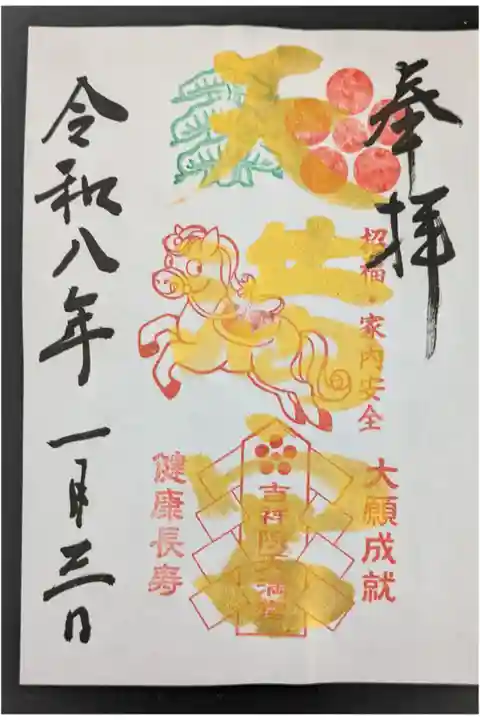 奉拝
招福・家内安全
大願成就
天
吉祥院天満宮
健康長寿
令和八年一月三日